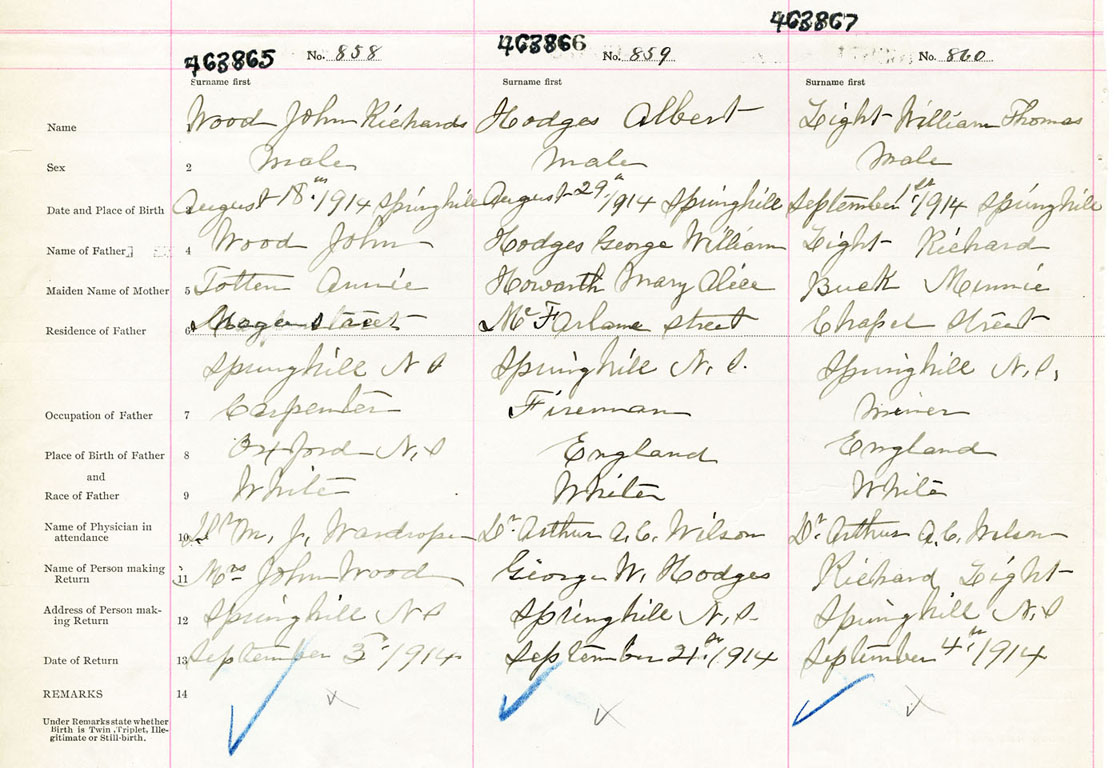 463865 No. 858 463866 No. 859 463867 No. 860
Surname first Surname first Surname first
Name 1 Wood John Richards Hodges Albert Light William Thomas
Sex 2 Male Male Male
Date and Place of Birth 3 August 18th 1914 Springhill August 29th 1914 Springhill September 1st 1914 Springhill
Name of Father 4 Wood John Hodges George William Light Richard
Maiden Name of Mother 5 Totten Annie Howarth Mary Alice Buck Minnie
Residence of Father 6 Street McFarlane Street Chapel Street
Springhill N S Springhill N.S. Springhill N.S.
Occupation of Father 7 Carpenter Fireman Miner
Place of Birth of Father 8 Oxford N.S England England
and
Race of Father 9 White White White
Name of Physician in attendance 10 Dr M. J. Wardrope Dr. Arthur A.C. Wilson Dr. Arthur A.C. Wilson
Name of Person making Return 11 Mrs John Wood George W. Hodges Richard Light
Address of Person making Return 12 Springhill N S Springhill N.S. Springhill N.S
Date of Return 13 September 1914 September 21st 1914 September 4th 1914
REMARKS 14
Under Remarks state whether
Birth is Twin, Triplet, Ille-
gitimate or Still-birth.